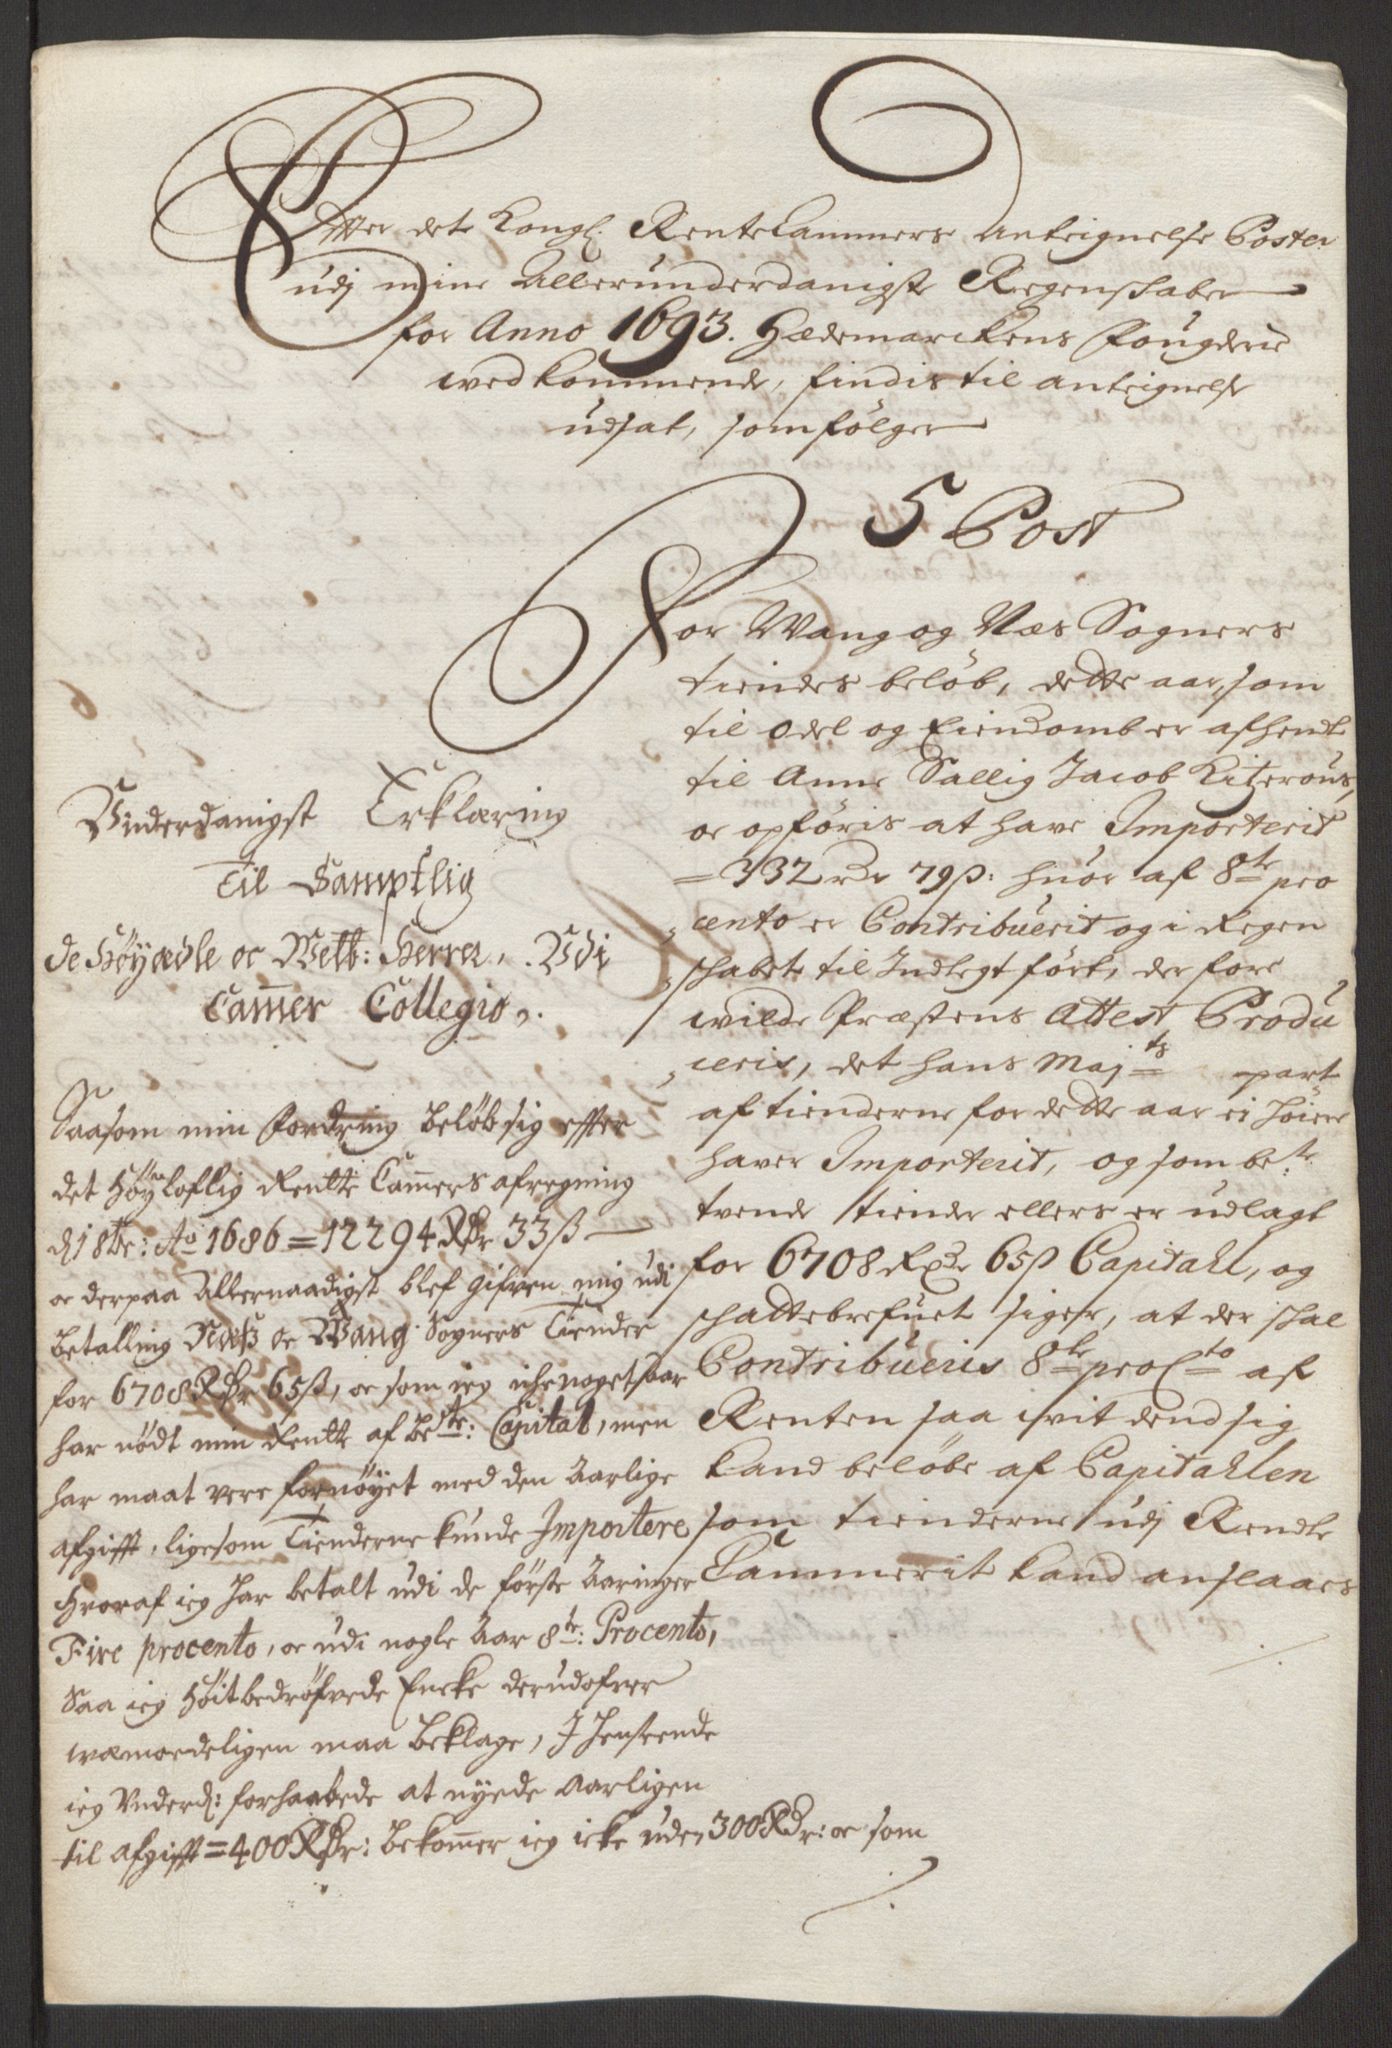 Effter det Kongl. RenteCammers Anteignelse Poster
udj mine Allerunderdanigste Regenskaber
for Anno 1693. Hædemarckens Fougderie
wedkommende, findis til anteignelse
udsat, som følger
5 Post
For Wang og Næs Sogners
tiendes beløb, dette aar, som
til odel og Eiendomb er afhendt
til Anne Sallig Jacob
oc opføris at have Importerit
=332 rdr 79ß: huor af 8te pro
cento er Contribuerit og i Regen
skabet til Indtegt ført, der fore
wilde Præstens Attest Produ
ceris, det hans Majts part
af tienderne for dette aar ei høiere
haver Importerit, og som bete
tvende tiender ellers er udlagt
for 6708 Rdr 65ß Capitahl, og
skattebrefuet siger, at der skal
Contribueris 8te proCto af
Renten saa wit dend sig
kand beløbe af Capitahlen
som tienderne udj Rendte
Cammerit kand anslaaes
Vnderdanigst Erklæring
Til Samptlig
de Høyædle oc Welb: Herrer, Vdi
Cammer Collegio.
Saasom min Fordring beløb sig effter
det Høyloflig Rentte Camers afregning
d 18 : Ao 1686 = 12294 Rdr 33ß
oc derpaa Allernaadigst blef gifven mig udi
betalling Næß oc Wang Sogners Tiender
for 6708 Rdr 65ß, oc som ieg iche noget aar
har nødt min Rentte af bete: Capital, men
har maat vere fornøyet med den Aarlige
afgifft, ligesom Tienderne kunde Importere
Hvoraf ieg har betalt udi de første Aaringer
Fire procento, oc udi nogle Aar 8te: Procento,
Saa ieg høitbedrøfvede Encke derudofver
wemoedeligen maa beklage, I henseende
ieg Vnderd: forhaabede at nyede Aarligen
til afgifft = 400 Rdr: bekomer ieg icke uden 300 Rdr: oc som